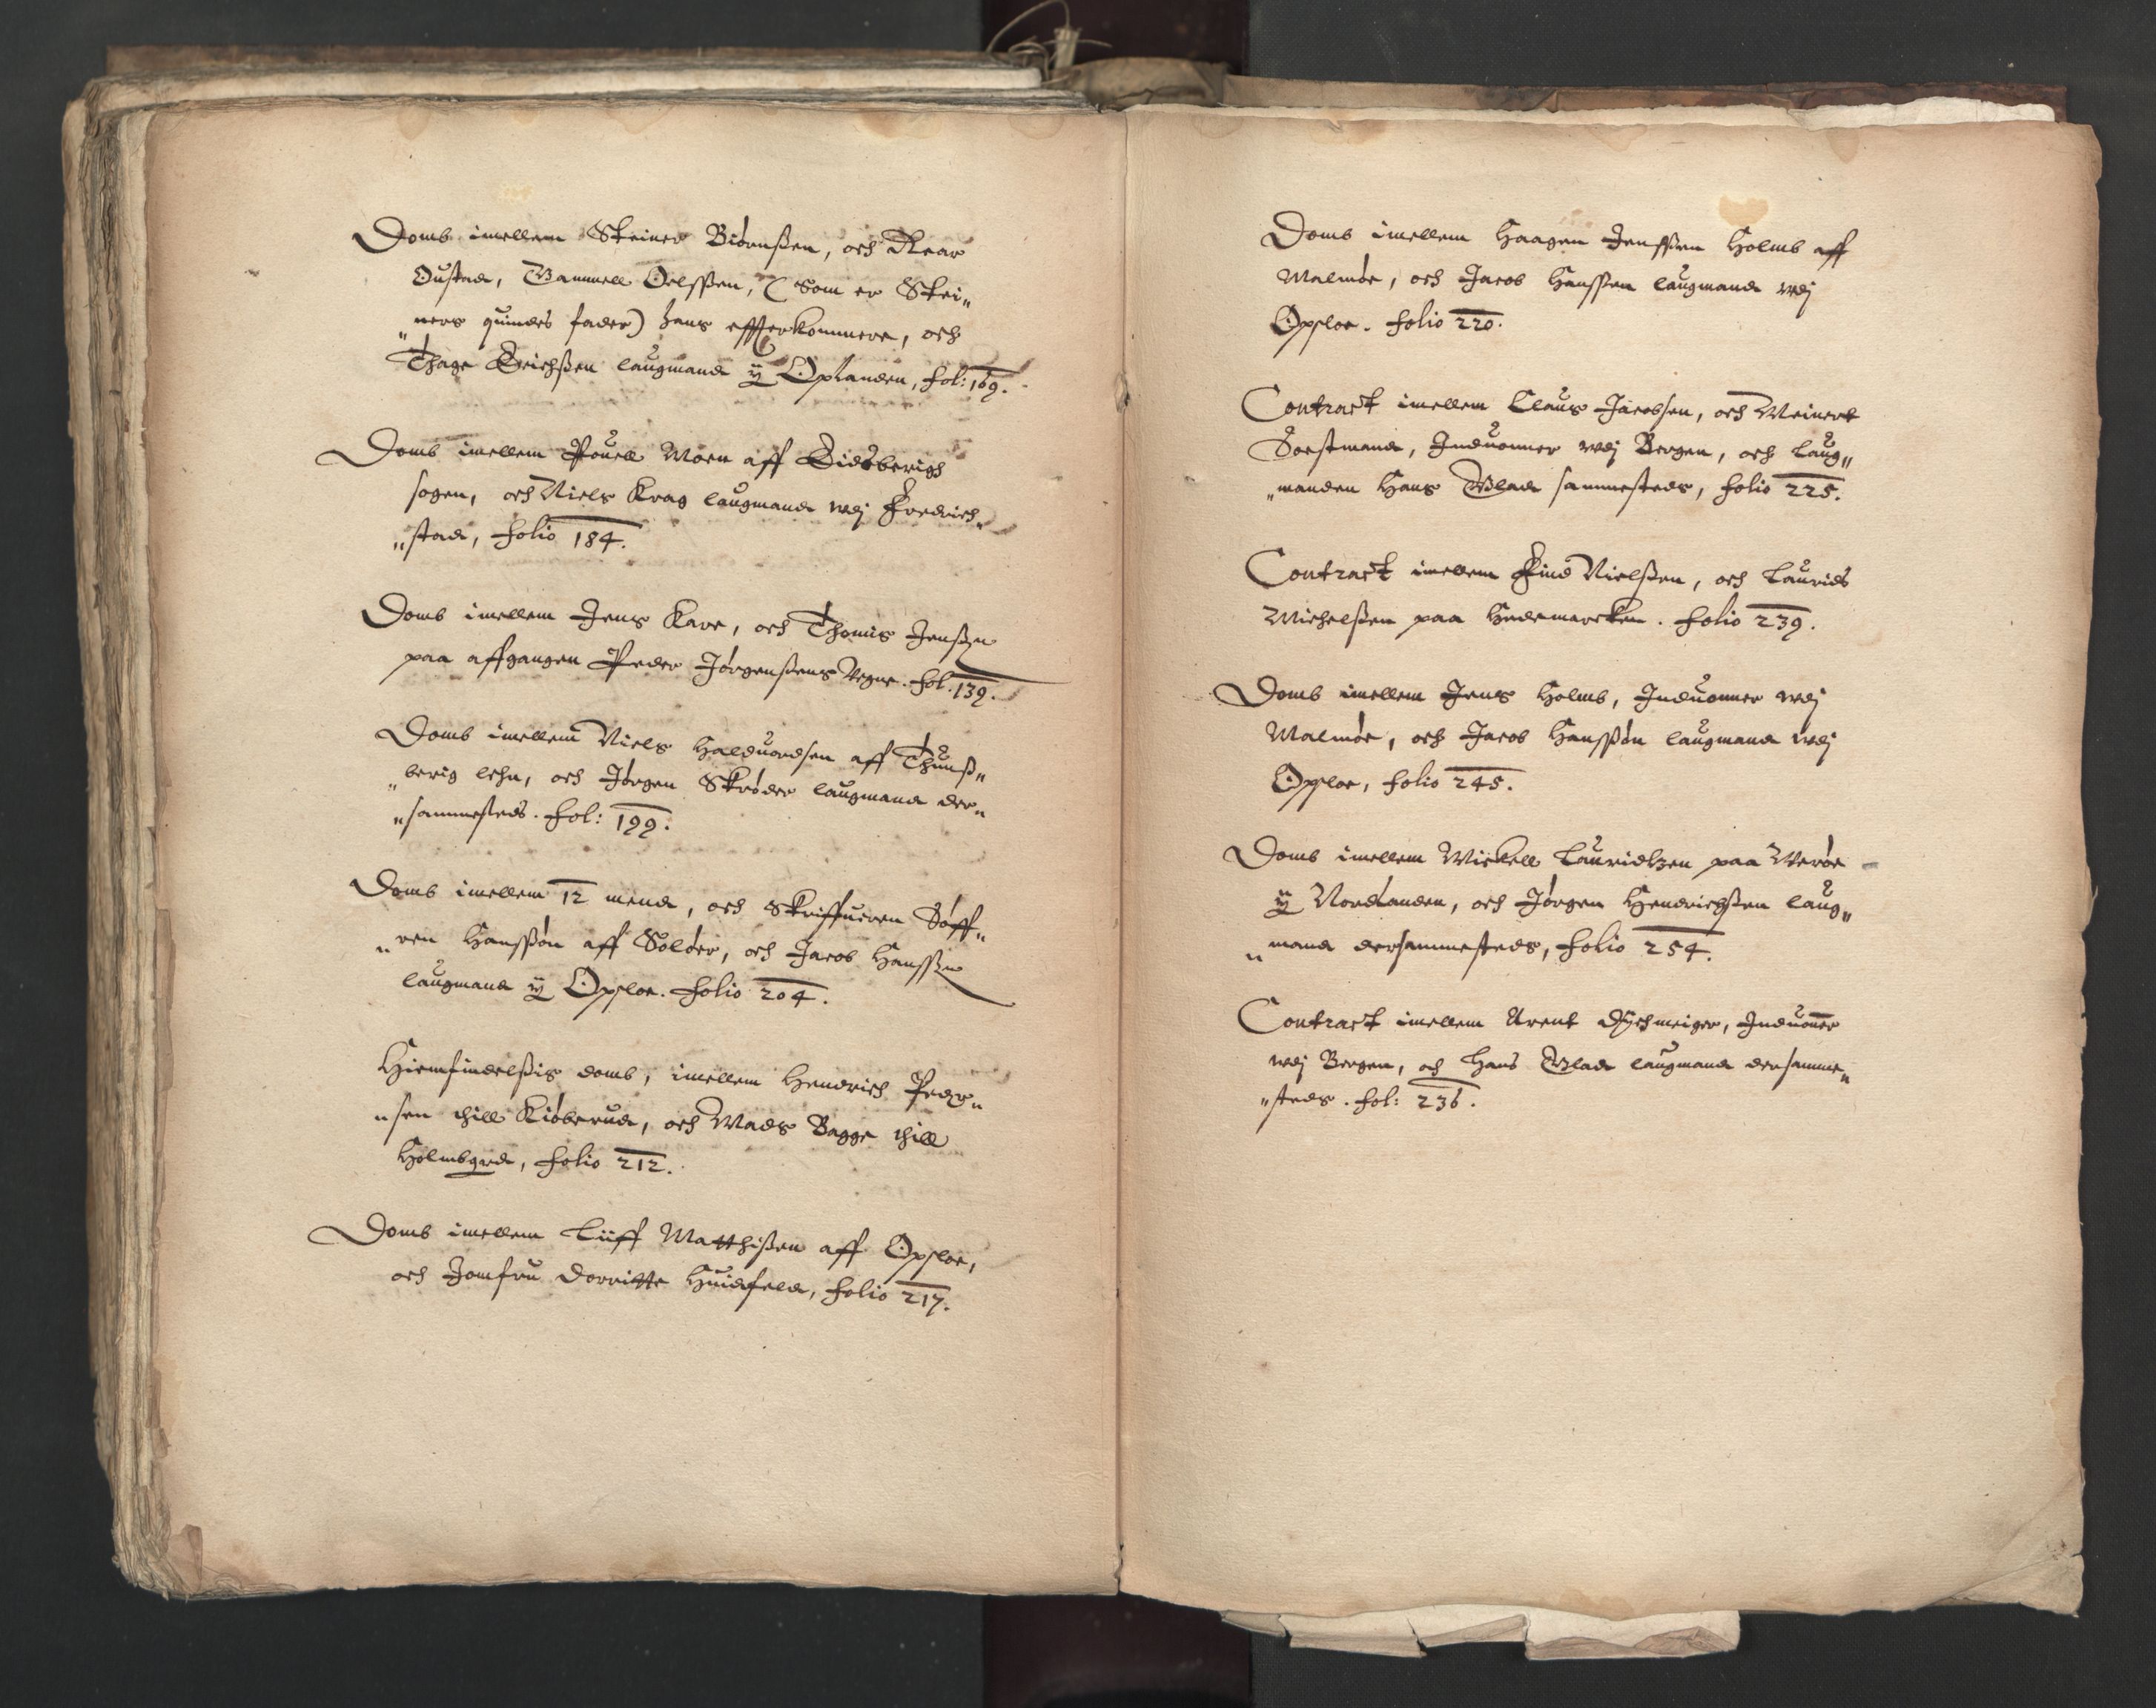 Domb imellem Steiner Biørnßen, och Roar
Oustad, Gammell Oelsßen, (Som er Stei„
„ners quindes fader) hans effterkommere, och
Thage Erichßen laugmand ÿ Oplanden, fol: 169.
Domb imellem Pouell Moen aff Eidsberigs
sogen, och Niels Krag laugmand wdj Fredrich„
„stad, folio 184.
Domb imellem Jens Kare, och Thomis Jenßen
paa affgangen Peder Jørgenßens Vegne. fol. 139.
Domb imellem Niels Halduordsen aff Thunß„
„berig lehn, och Jørgen Skrøder laugmand der„
„sammesteds. fol: 199.
Domb imellem 12 mend, och Skriffueren Søff„
„ren Hansßøn aff Soløer, och Jacob Hansßen
laugmand ÿ Opsloe. folio 204.
Hiemfindelßis domb, imellem Hendrich Peder„
„sen thill Kiøberud, och Mads Bagge thill
Holmbgrd, folio 212.
Domb imellem Liiff Matthißen aff Opsloe,
och Jomfru Dorritte Huidfeld, folio 217.
Domb imellem Haagen Jensßen Holmb aff
Malmøe, och Jacob Hansßen laugmand wdj
Opsloe. folio 220.
Contract imellem Claus Jacobsen, och Meinert
Soestmand, Induonner wdj Bergen, och laug„
„manden Hans Glad sammesteds, folio 225.
Contract imellem Find Nielßen, och Laurids
Michelßen paa Hedemarcken. folio 239.
Domb imellem Jens Holmb, Induonner wdj
Malmøe, och Jacob Hansßøn laugmand wdj
Opsloe, folio 245.
Domb imellem Mickell Lauridtzen paa Werøe
ÿ Nordlanden, och Jørgen Hendrichßen laug„
„mand dersammesteds, folio 254.
Contract imellem Arent Dychmeiger, Induoner
wdj Bergen, och Hans Glad laugmand dersamme„
„steds. fol: 236.